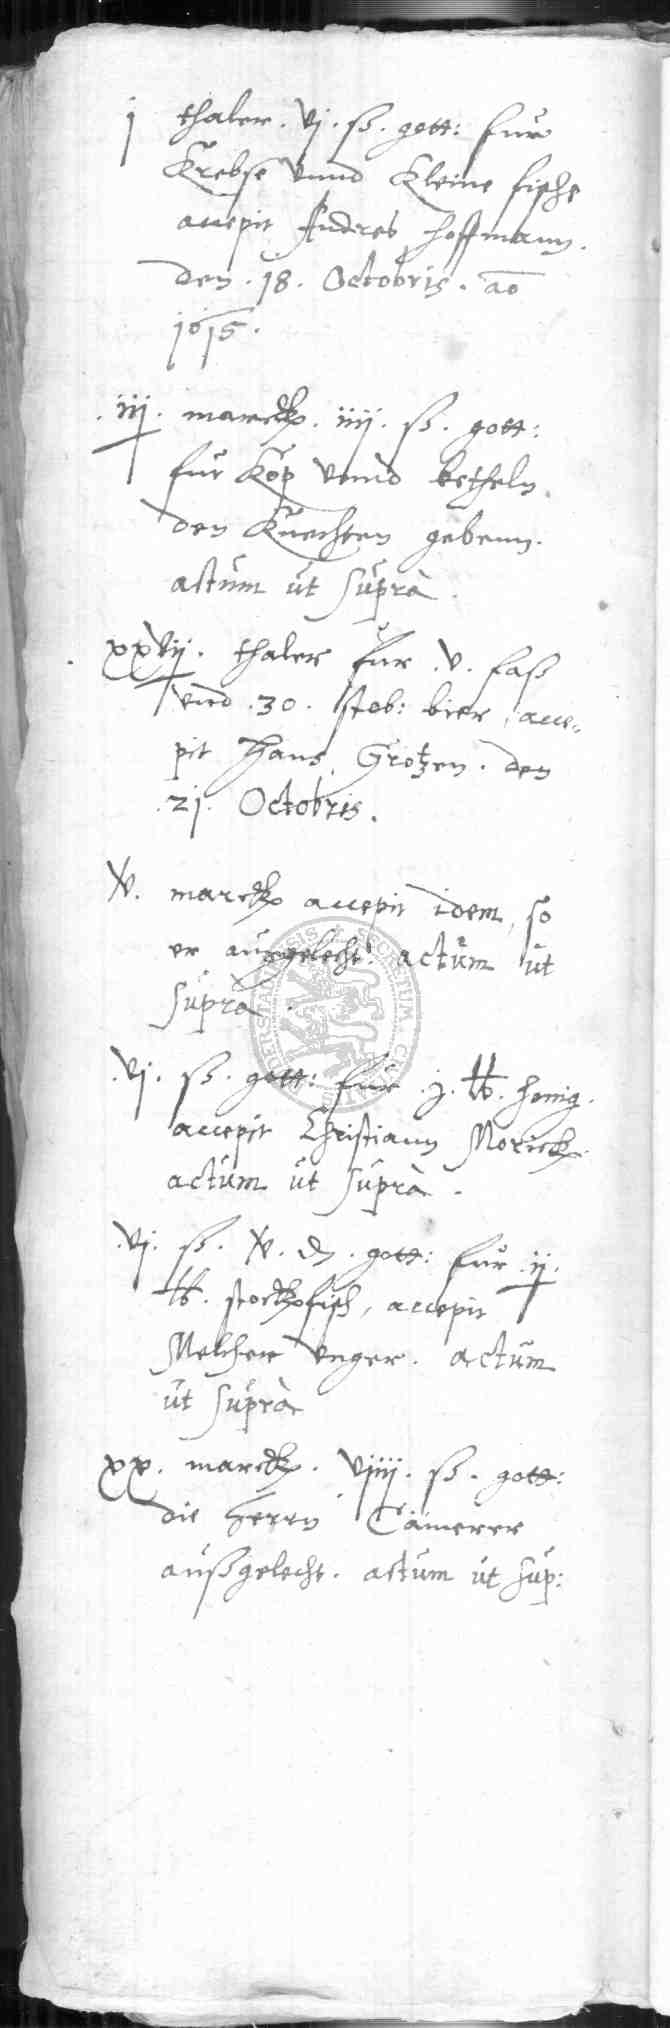 j thaler. vj. ß. gott: fur
Krebse vnnd Kleine fische
accepit Andres hoffmann.
den. 18. Octobris. ao
1615.
.iij. marckh. iiij. ß. gott:
fur Kop vnnd
den Knechten gebenn.
actum ut supra.
xxvij. thaler fur .v. faß
vnd .30. stob: bier, acce-
pit Hans Grotzen. den
.21. Octobris.
v. marckh accepit idem, so
er außgelecht. actum ut
supra.
.vj. ß. gott: fur .j. ℔. honig.
accepit Christiann Morickh.
actum ut supra.
.vj. ß. v. ₰. gott: fur .ij.
℔. stockhfisch, accepit
Melcher vnger. actum
ut supra
xx. marckh. viiij. ß. gott:
die Herrn Cämerer
außgelecht. actum ut sup: